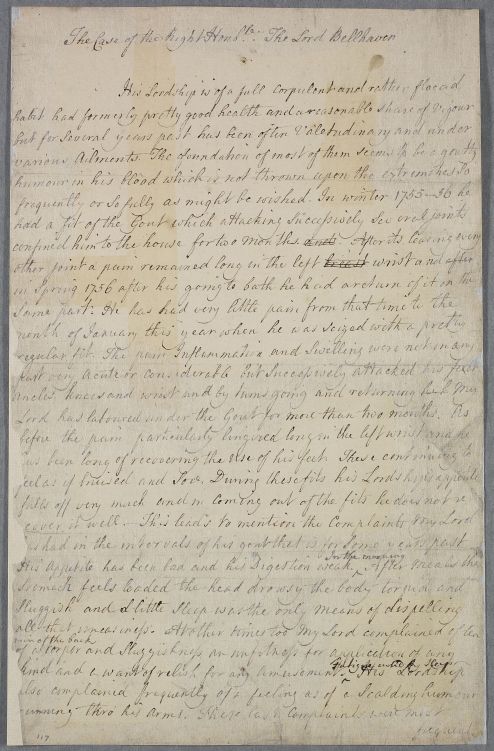 The Case of the Right Honble. The Lord Bellhaven
His Lordship is of a full Corpulent and rather flaccid
habit had formerly pretty good health and a reasonable share of Vigour
but for several years past has been often Valetudinary and under
various Ailments. The foundation of most of them seems to be a gouty
humour in his blood which is not thrown upon the extremities so
frequently or so fully as might be wished. In winter 1755-56 he
had a fit of the Gout which attacking Successively several joints
confined him to the house for two months and. After its leaving every
other joint a pain remained long in the left breast wrist and after
in Spring 1756 after his going to bath he had a return of it on the
same part. He has had very little pain from that time to the
month of January this year when he was seized with a pretty
regular fit. The pain Inflammation and Swelling were not in any
part very acute or considerable but Successively attacked his feet
ancles, knees and wrist and by turns going and returning My
Lord has laboured under the Gout for more than two months. As
before the pain particularly lingered long in the left wrist and he
has been long of recovering the use of his feet. These continuing to
feel as if bruised and Sore. During these fits his Lordships appetite
falls off very much and in coming out of the fits he does not re
cover it well. This leads to mention the Complaints My Lord
has had in the intervals of his gout that is for some years past
His Appetite has been bad and his Digestion weak In the morning After meals the
stomach feels loaded the head drowsy the body torpid and
Sluggish and a little Sleep was the only means of dispelling
all that uneasiness. At other times too My Lord complained often
pain of the back
of a torpor and Sluggishness an unfitness for application of any
kind and a want of relish for any amusement. His Lordship
also complained frequently of a feeling as of a Scalding humour
running thro his Arms. These last Complaints were most
frequent
117